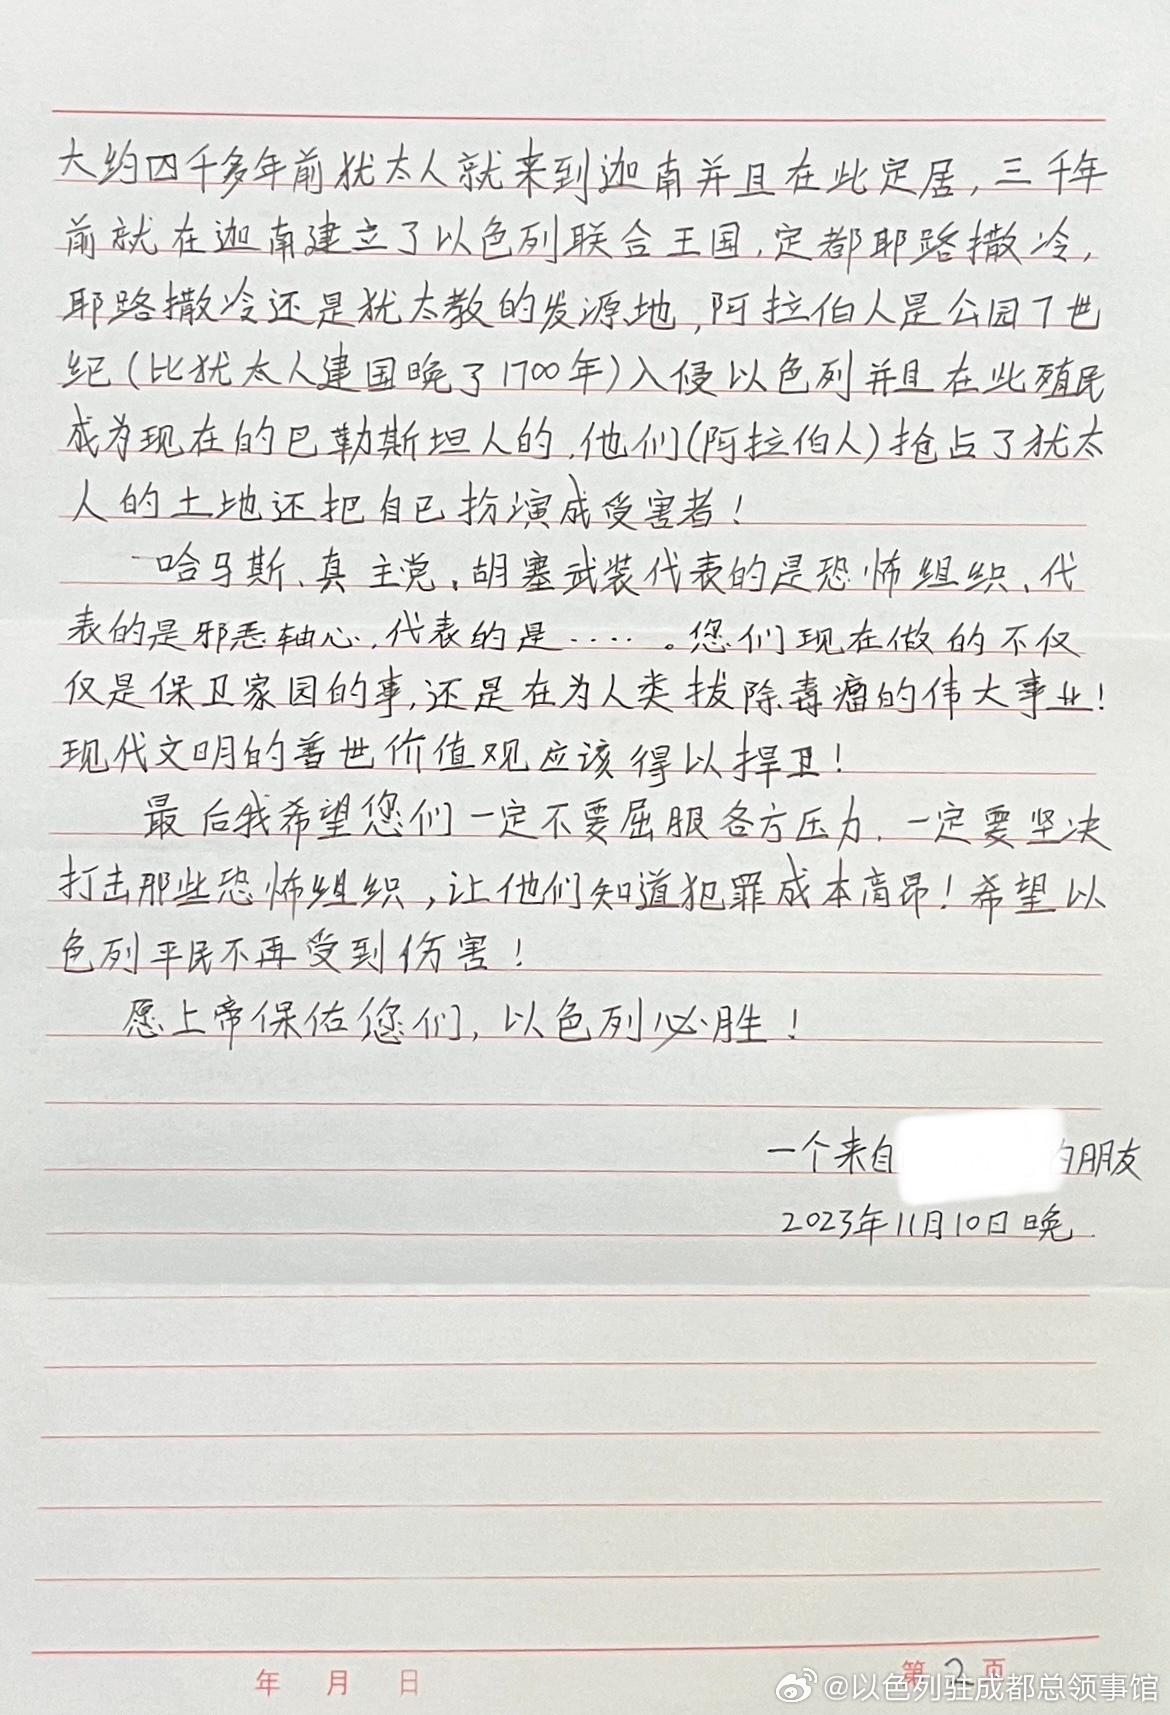 大约四千多年前犹太人就来到迦南并且在此定居，三千年
前就在迦南建立了以色列联合王国，定都耶路撒冷，
耶路撒冷还是犹太教的发源地，阿拉伯人是公园7世
纪（比犹太人建国晚了1700年）入侵以色列并且在此殖民
成为现在的巴勒斯坦人的，他们（阿拉伯人）抢占了犹太
人的土地还把自己扮演成受害者！
哈马斯、真主党、胡塞武装代表的是恐怖组织、代
表的是邪恶轴心，代表的是……。您们现在做的不仅
仅是保卫家园的事，还是在为人类拔除毒瘤的伟大事业！
现代文明的普世价值观应该得以捍卫！
最后我希望您们一定不要屈服各方压力，一定要坚决
打击那些恐怖组织，让他们知道犯罪成本高昂！希望以
色列平民不再受到伤害！
愿上帝保佑您们，以色列必胜！
一个来自 的朋友
2023年11月10日晚
年 月 日 第2页
@以色列驻成都总领事馆